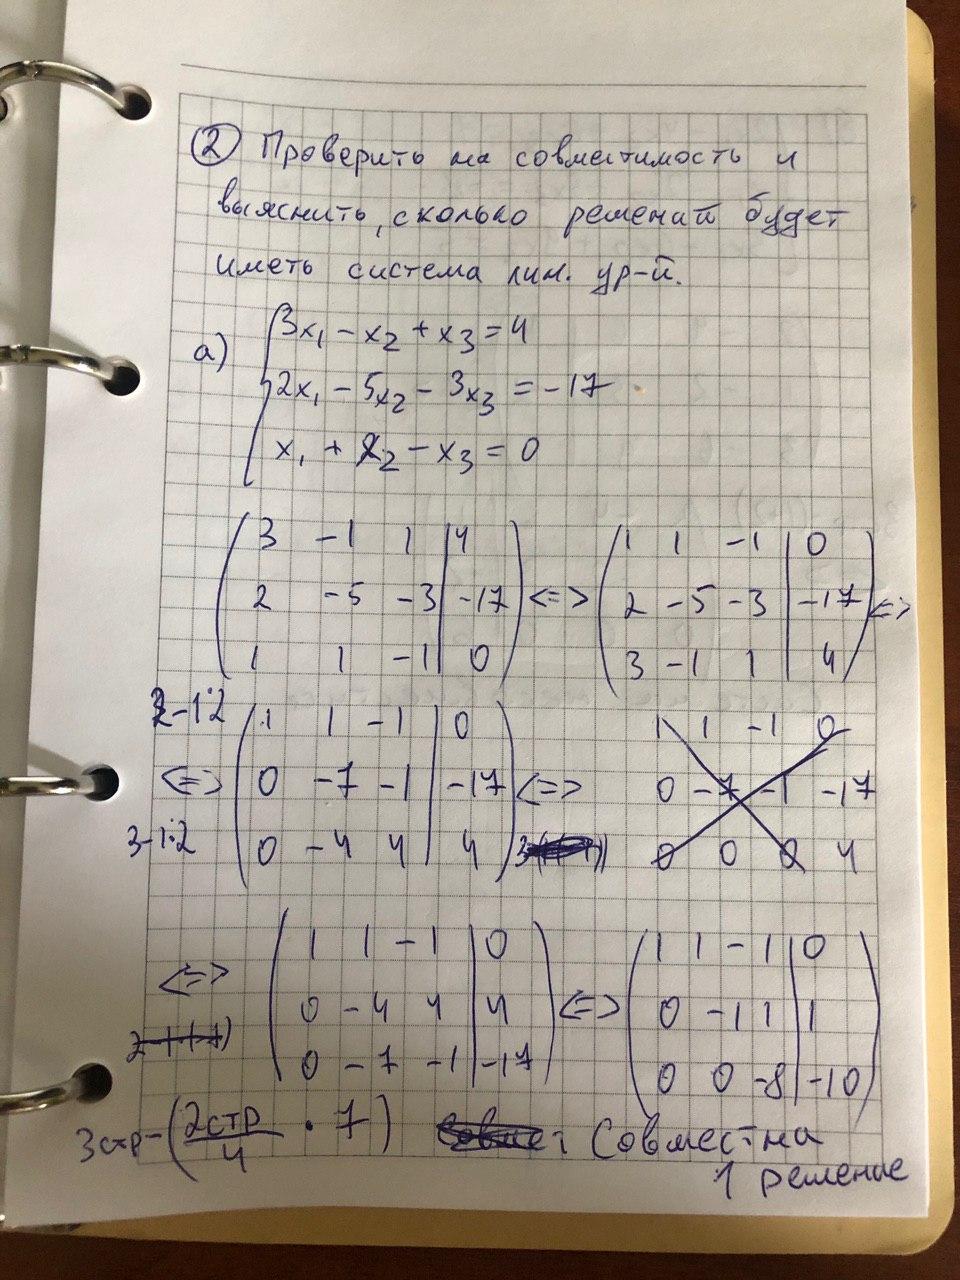 ② Проверить на совместимость и
выяснить, сколько решений будет
иметь система лин. ур-й.
а) 3x₁ - x₂ + x₃ = 4
2x₁ - 5x₂ - 3x₃ = -17
x₁ + x₂ - x₃ = 0
3 -1 1 | 4 1 1 -1 | 0
2 -5 -3 | -17 <=> 2 -5 -3 | -17 <=>
1 1 -1 | 0 3 -1 1 | 4
2-1·2 1 1 -1 | 0 1 1 -1 0
<=> 0 -7 -1 | -17 <=> 0 -7 -1 -17
3-1·2 0 -4 4 | 4 0 0 0 4
1 1 -1 | 0 1 1 -1 | 0
<=> 0 -4 4 | 4 <=> 0 -1 1 | 1
0 -7 -1 | -17 0 0 -8 | -10
3стр-(2стр/4 · 7) Совместна
1 решение